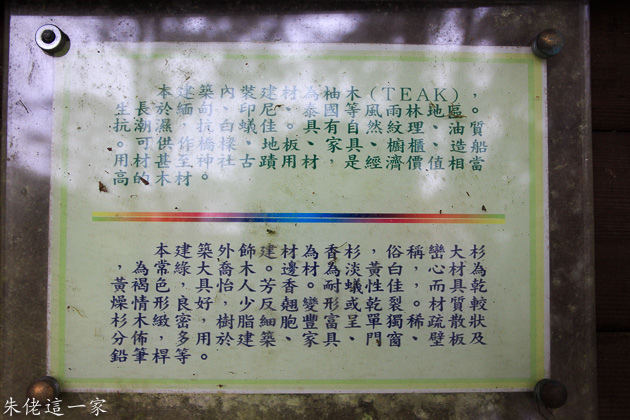 本建築內裝建材為柚木(TEAK)，
生長於緬甸、印尼、泰國等風雨林地區。
抗潮濕，抗白蟻佳。具有自然紋理、油質
。可供作橋樑、地板、家具、櫥櫃、造船
用材甚至神社古蹟用材，是經濟價值相當
高的木材。
本建築外飾建材為香杉，俗稱巒大杉
，為常綠大喬木。邊材為淡黃白，心材為
黃褐色，具怡人芳香。耐蟻性佳，而具乾
燥情形良好，少反翹變形或乾裂。材質較
杉木緻密，樹脂細胞豐富、呈單獨稀疏散狀
分佈，多用於建築、家具、門窗、壁板及
鉛筆桿等。
朱佬這一家